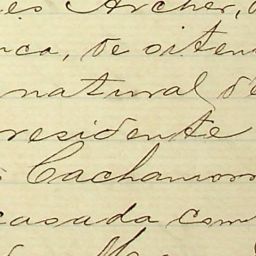 es Archer,
ca, de oiten
natural de
residente
Cachamorr
casada com